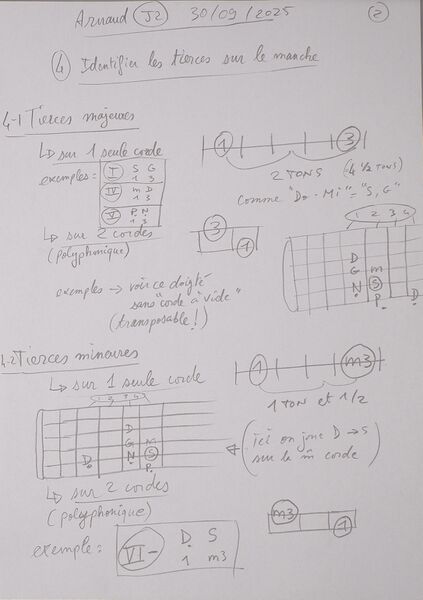 Arnaud J2 30/09/2025 2
4 Identifier les tierces sur le manche
4-1 Tierces majeures
↳ sur 1 seule corde
exemples:
I S G
1 3
IV m D
1 3
V P N
1 3
1 3
2 TONS (4 1/2 TONS)
comme "Do - Mi" = "S, G"
↳ sur 2 cordes
(polyphonique)
3
1
1 2 3 4
D
G m
N S
P D
exemples → voir ce doigté
sans "corde à vide"
(transposable !)
4-2 Tierces mineures
↳ sur 1 seule corde
1 m3
1 TON et 1/2
1 2 3 4
D
G m
D N S
P
(ici on joue D → S
sur la m corde)
↳ sur 2 cordes
(polyphonique)
m3
1
exemple:
VI- D S
1 m3